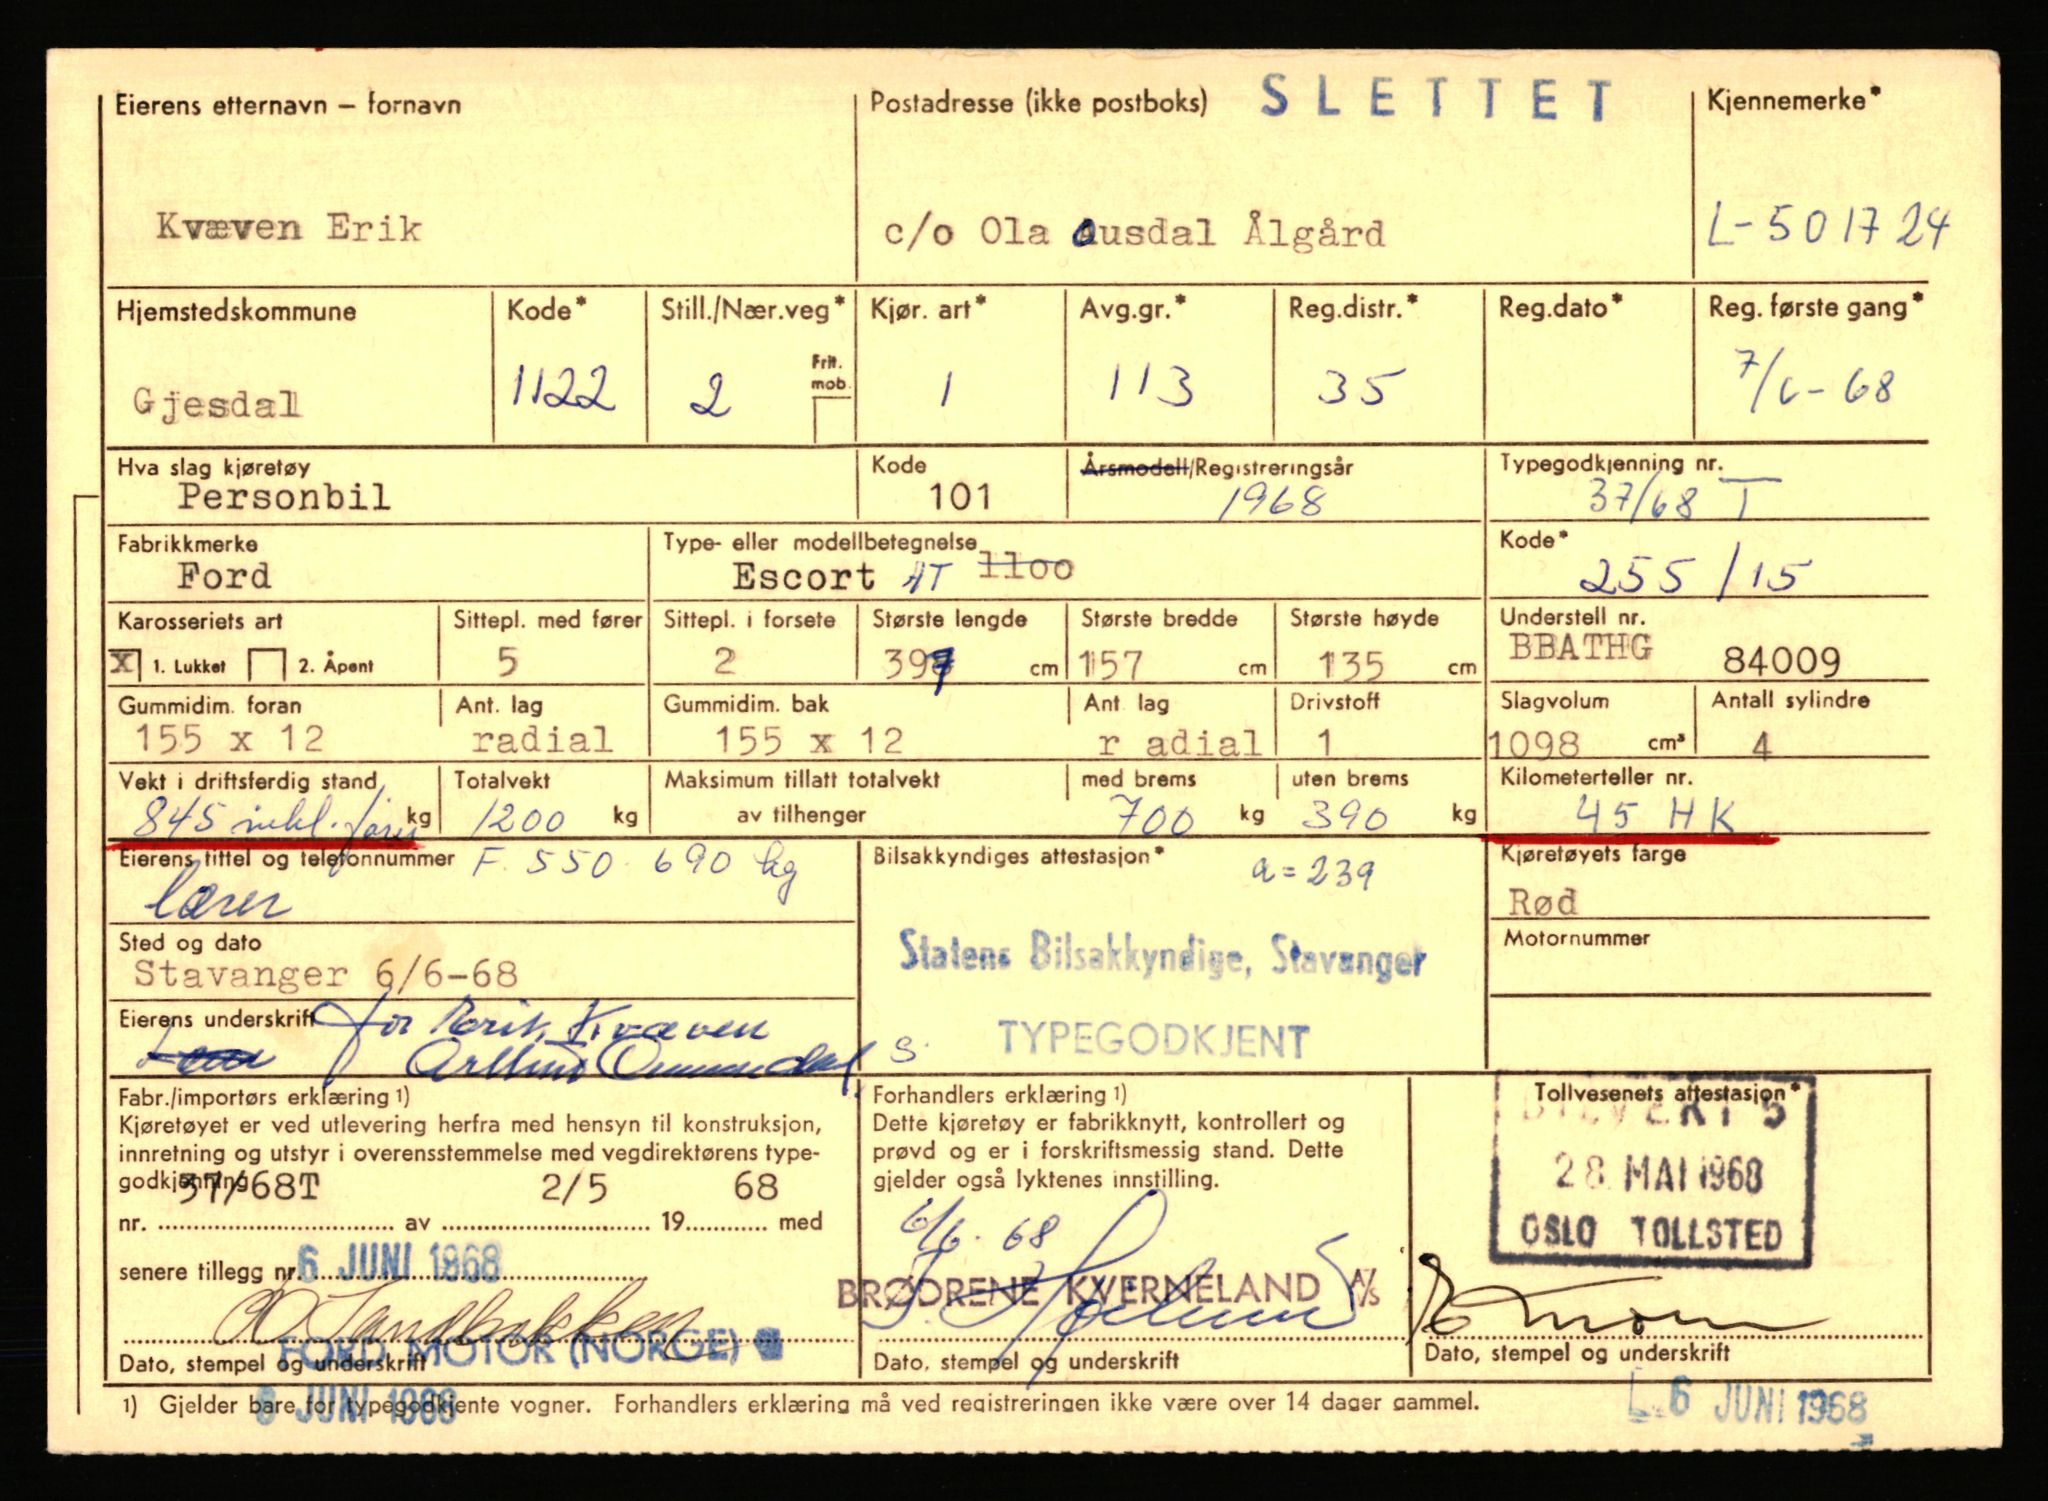 Eierens etternavn – fornavn Postadresse (ikke postboks) SLETTET Kjennemerke*
Kvæven Erik c/o Ola Ousdal Ålgård L-501724
Hjemstedskommune Kode* Still./Nær.veg* Kjør. art* Avg.gr.* Reg.distr.* Reg.dato* Reg. første gang*
Frit. mob.
Gjesdal 1122 2 1 113 35 7/6-68
Hva slag kjøretøy Kode Årsmodell/Registreringsår Typegodkjenning nr.
Personbil 101 1968 37/68 T
Fabrikkmerke Type- eller modellbetegnelse Kode*
Ford Escort AT 1100 255/15
Karosseriets art Sittepl. med fører Sittepl. i forsete Største lengde Største bredde Største høyde Understell nr.
X 1. Lukket 2. Åpent 5 2 397 cm 157 cm 135 cm BBATHG 84009
Gummidim. foran Ant. lag Gummidim. bak Ant. lag Drivstoff Slagvolum Antall sylindre
155 x 12 radial 155 x 12 r adial 1 1098 cm³ 4
Vekt i driftsferdig stand Totalvekt Maksimum tillatt totalvekt med brems uten brems Kilometerteller nr.
845 inkl. fører kg 1200 kg av tilhenger 700 kg 390 kg 45 HK
Eierens tittel og telefonnummer F. 550. 690 kg Bilsakkyndiges attestasjon* a=239 Kjøretøyets farge
lærer Rød
Sted og dato Statens Bilsakkyndige, Stavanger Motornummer
Stavanger 6/6-68
Eierens underskrift for Erik Kvæven S. TYPEGODKJENT
Fabr./importørs erklæring 1) Forhandlers erklæring 1) Tollvesenets attestasjon*
Kjøretøyet er ved utlevering herfra med hensyn til konstruksjon, Dette kjøretøy er fabrikknytt, kontrollert og
innretning og utstyr i overensstemmelse med vegdirektørens type- prøvd og er i forskriftsmessig stand. Dette 28 MAI 1968
godkjenning gjelder også lyktenes innstilling.
37/68T 2/5 68
nr. av 19 med 6/6. 68 OSLO TOLLSTED
senere tillegg nr. 6 JUNI 1968
BRØDRENE KVERNELAND A/S
FORD MOTOR (NORGE)
Dato, stempel og underskrift Dato, stempel og underskrift Dato, stempel og underskrift
6 JUNI 1968 L. 6 JUNI 1968
1) Gjelder bare for typegodkjente vogner. Forhandlers erklæring må ved registreringen ikke være over 14 dager gammel.